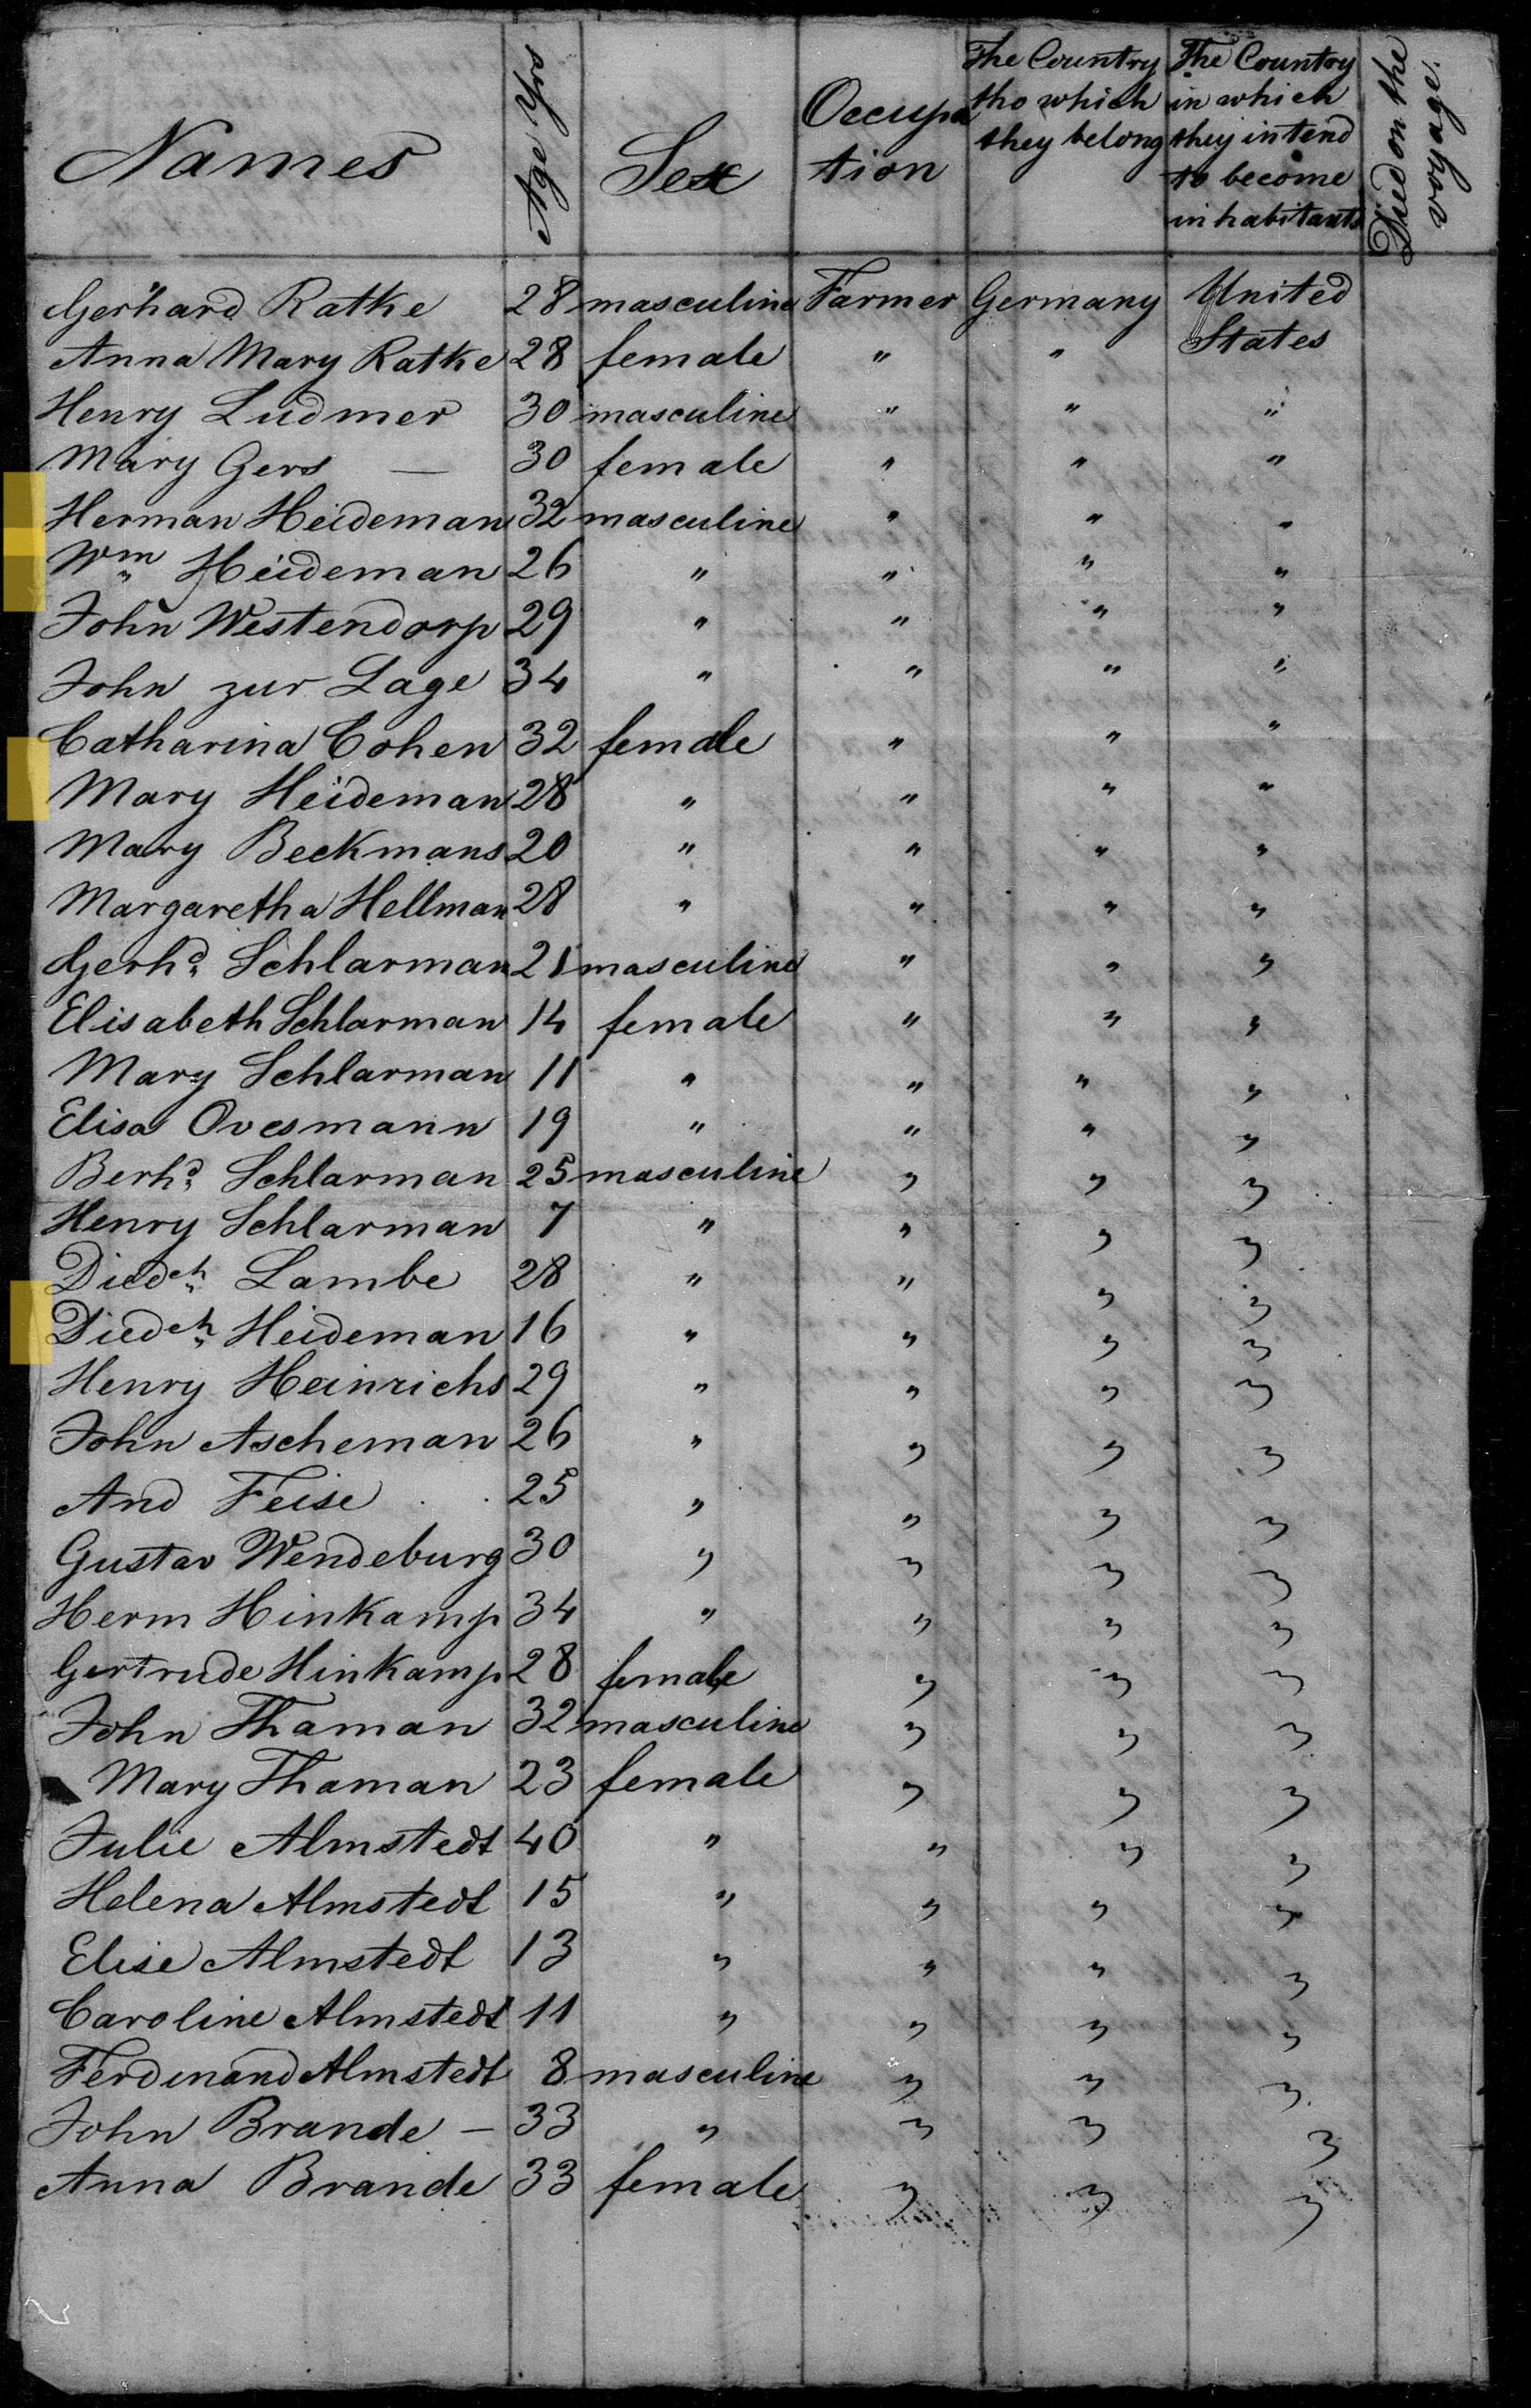 Names Age Yrs Sex Occupation The Country tho which they belong The Country in which they intend to become inhabitants Died on the voyage.
Gerhard Ratke 28 masculine Farmer Germany United States
Anna Mary Ratke 28 female " "
Henry Ludmer 30 masculine " " "
Mary Gers — 30 female " " "
Herman Heideman 32 masculine " " "
Wm Heideman 26 " " " "
John Westendorp 29 " " " "
John zur Lage 34 " " " "
Catharina Cohen 32 female " " "
Mary Heideman 28 " " " "
Mary Beckmans 20 " " " "
Margaretha Hellman 28 " " " "
Gerhd Schlarman 21 masculine " " "
Elisabeth Schlarman 14 female " " "
Mary Schlarman 11 " " " "
Elisa Ovesmann 19 " " " "
Berhd Schlarman 25 masculine " " "
Henry Schlarman 7 " " " "
Diedch Lambe 28 " " " "
Diedch Heideman 16 " " " "
Henry Heinrichs 29 " " " "
John Ascheman 26 " " " "
And Feise 25 " " " "
Gustav Wendeburg 30 " " " "
Herm Hinkamp 34 " " " "
Gertrude Hinkamp 28 female " " "
John Thaman 32 masculine " " "
Mary Thaman 23 female " " "
Julie Almstedt 40 " " " "
Helena Almstedt 15 " " " "
Elise Almstedt 13 " " " "
Caroline Almstedt 11 " " " "
Ferdinand Almstedt 8 masculine " " "
John Brande – 33 " " " "
Anna Brande 33 female " " "